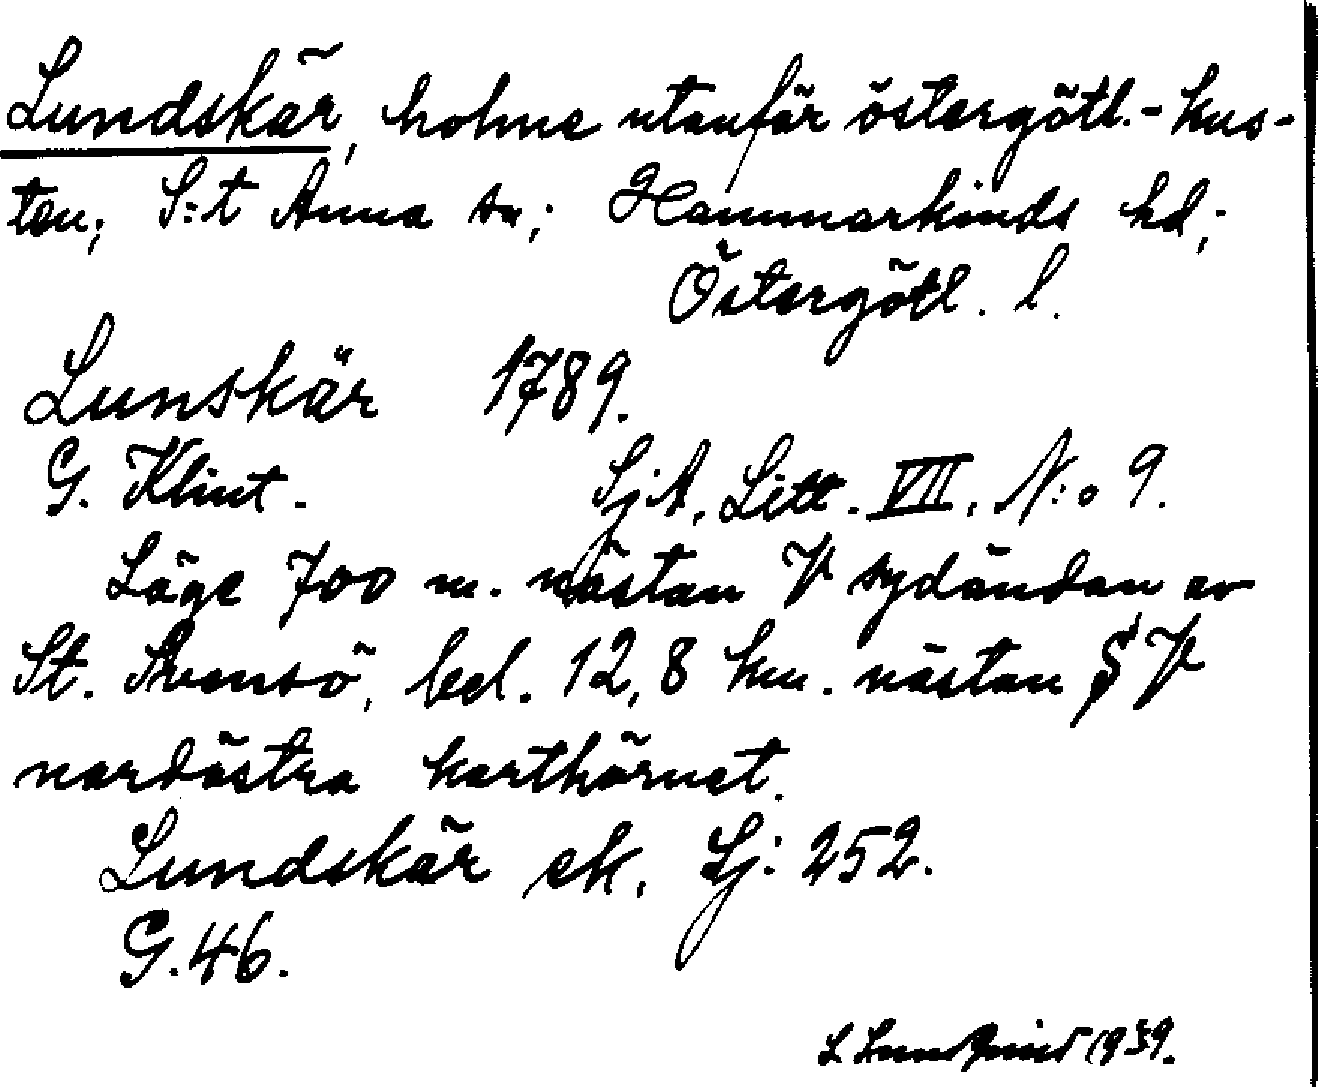 Lundskär, holme utanför östergötl.-kus-
ten; S:t Anna sn; Hammarkinds hd;
Östergötl. l.
Lunskär 1789.
G. Klint. SjA, Litt. VII, N:o 9.
Läge 700 m. nästan V sydändan av
St. Svensö, bel. 12,8 km. nästan V
nordöstra karthörnet.
Lundskär ek. Sj: 252.
G.46.
L Lundqvist 1939.